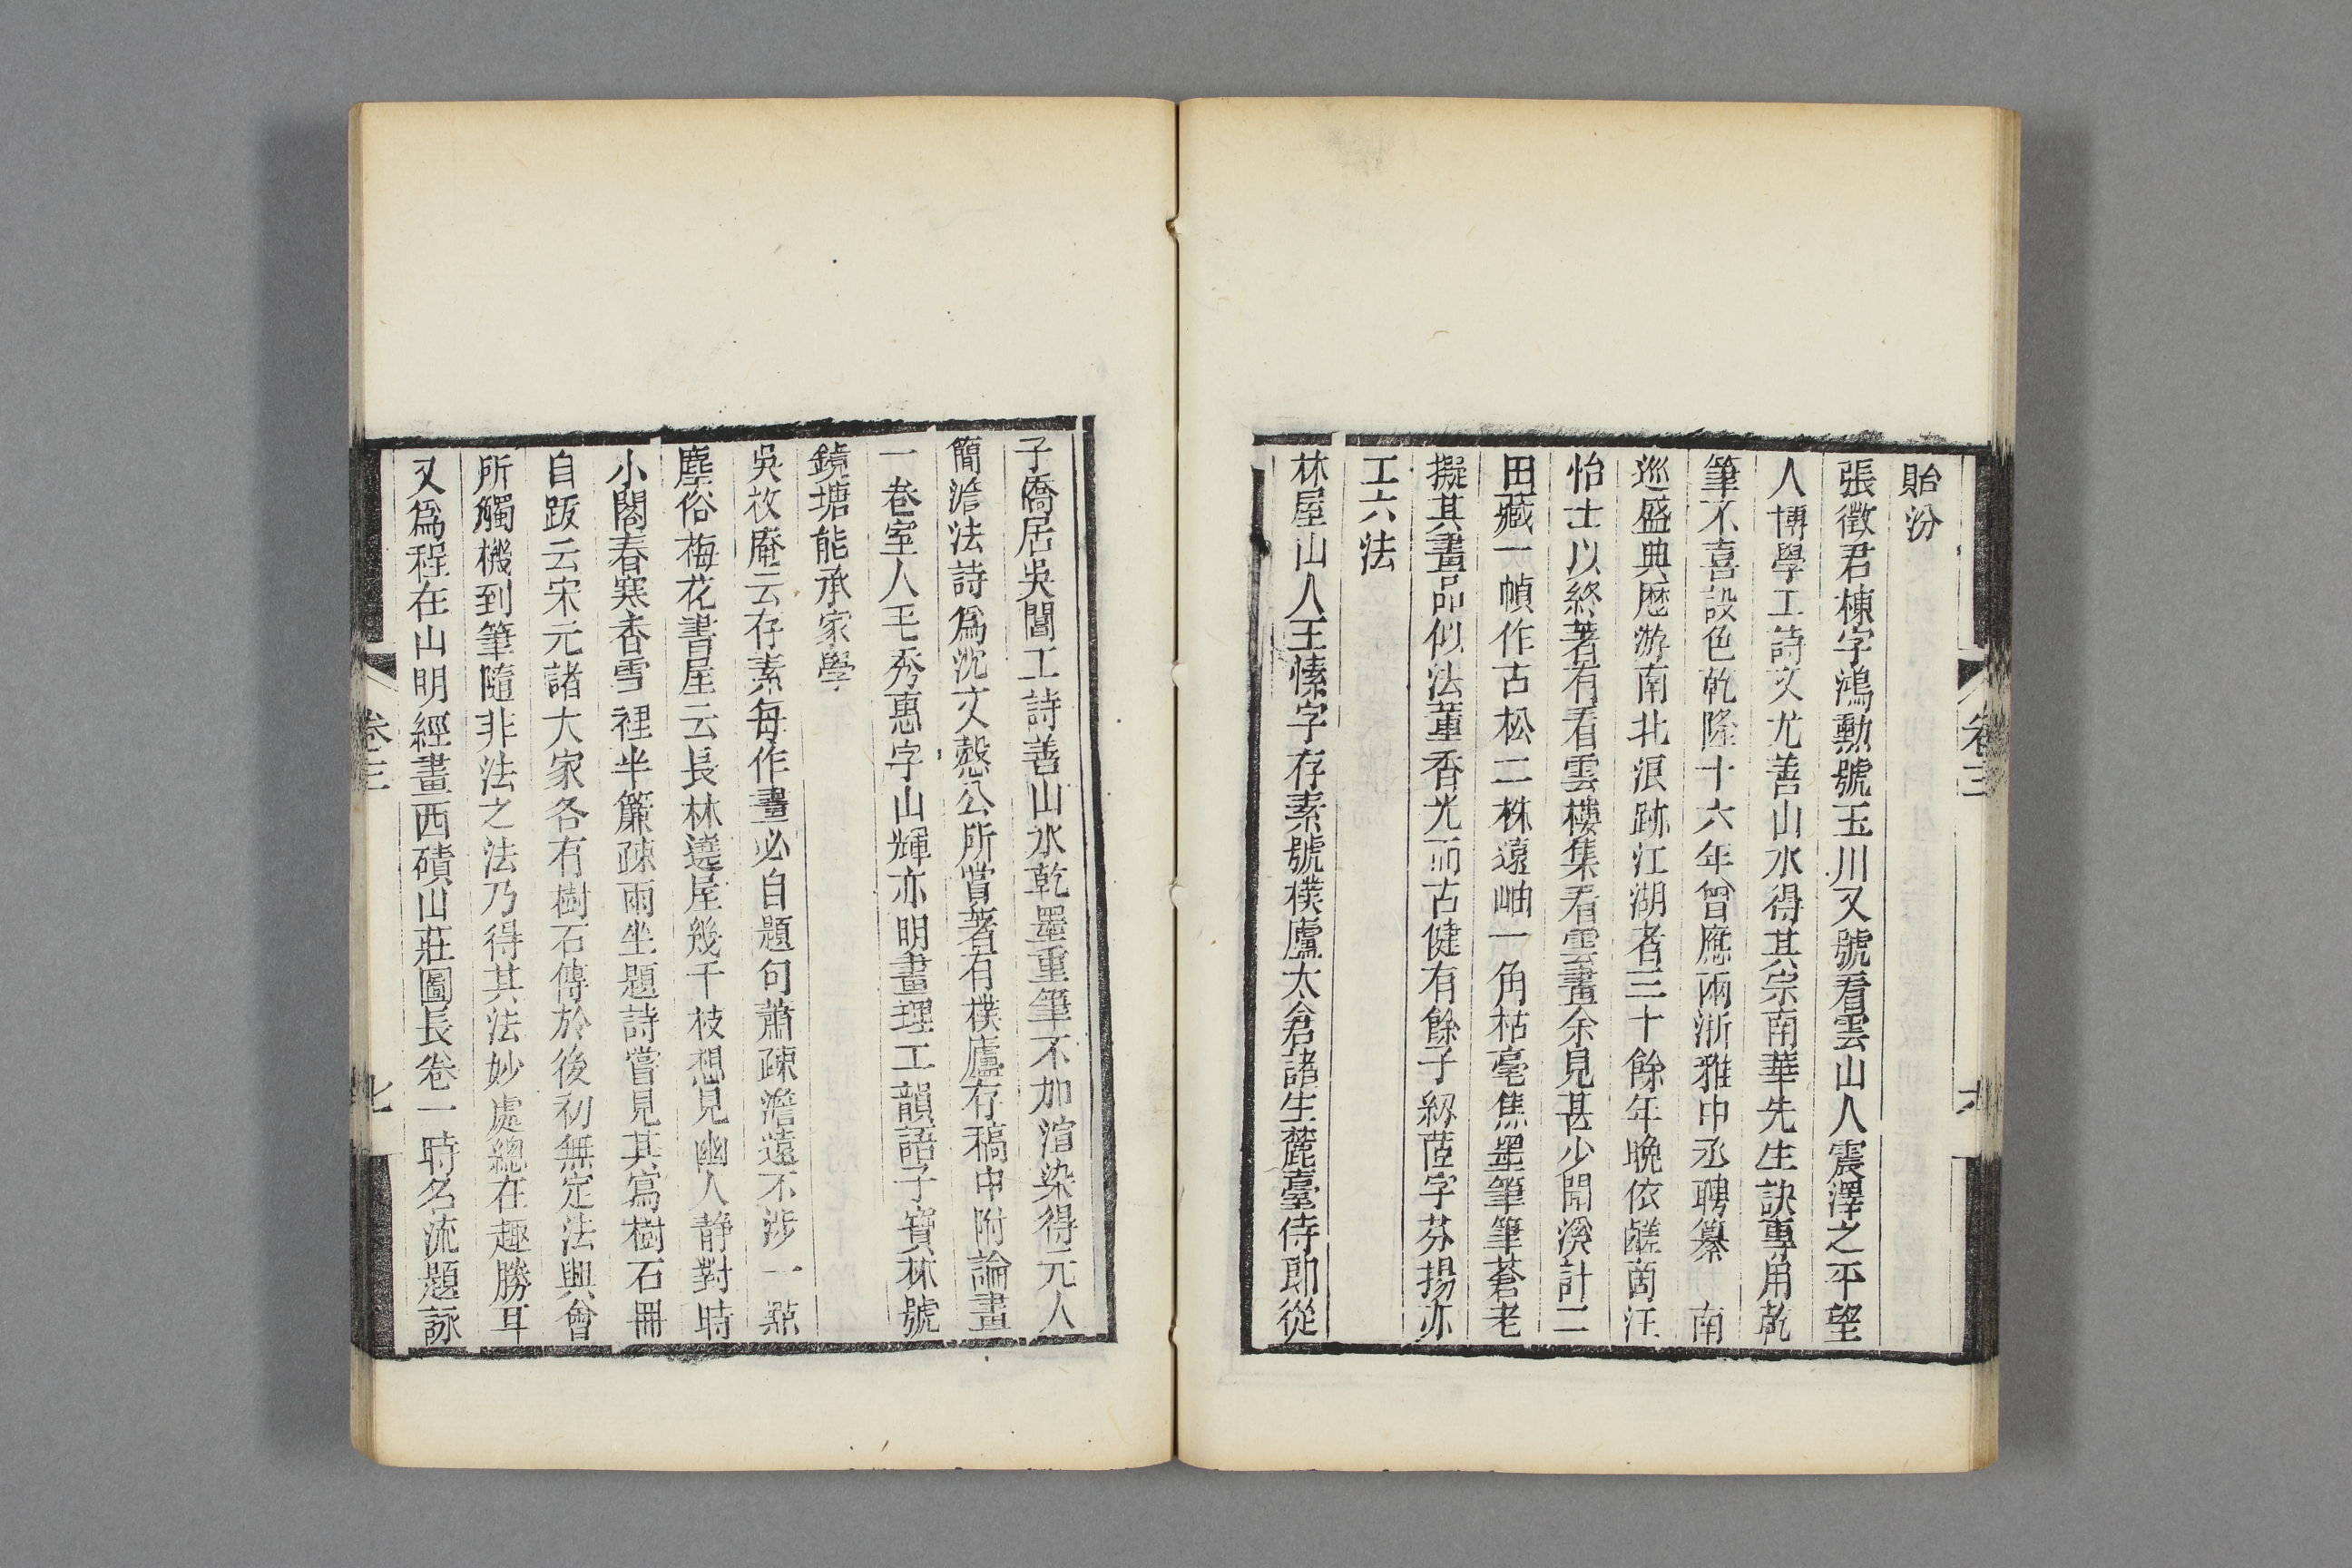 貽汾
張徵君棟字鴻勳號玉川又號看雲山人震澤之平望
人博學工詩文尤善山水得其宗南華先生訣專用乾
筆不喜設色乾隆十六年曾應兩浙雅中丞聘纂 南
巡盛典歷游南北浪跡江湖者三十餘年晚依鹺商汪
怡士以終著有看雲樓集看雲畫余見甚少聞溪計二
田藏一幀作古松二株遠岫一角枯毫焦墨筆筆蒼老
擬其畫品似法董香光而古健有餘子紉茝字芬揚亦
工六法
林屋山人王愫字存素號樸廬太倉諸生麓臺侍郎從
卷三
六
子僑居吳閶工詩善山水乾墨重筆不加渲染得元人
簡澹法詩爲沈文慤公所賞著有樸廬存稿中附論畫
一卷室人毛秀惠字山輝亦明畫理工韻語子寶林號
鏡塘能承家學
吳枚庵云存素每作畫必自題句蕭疎澹遠不涉一點
塵俗梅花書屋云長林遶屋幾千枝想見幽人靜對時
小閣春寒香雪裡半簾疎雨坐題詩嘗見其寫樹石冊
自跋云宋元諸大家各有樹石傳於後初無定法興會
所觸機到筆隨非法之法乃得其法妙處總在趣勝耳
又爲程在山明經畫西磧山莊圖長卷一時名流題詠
卷三
七